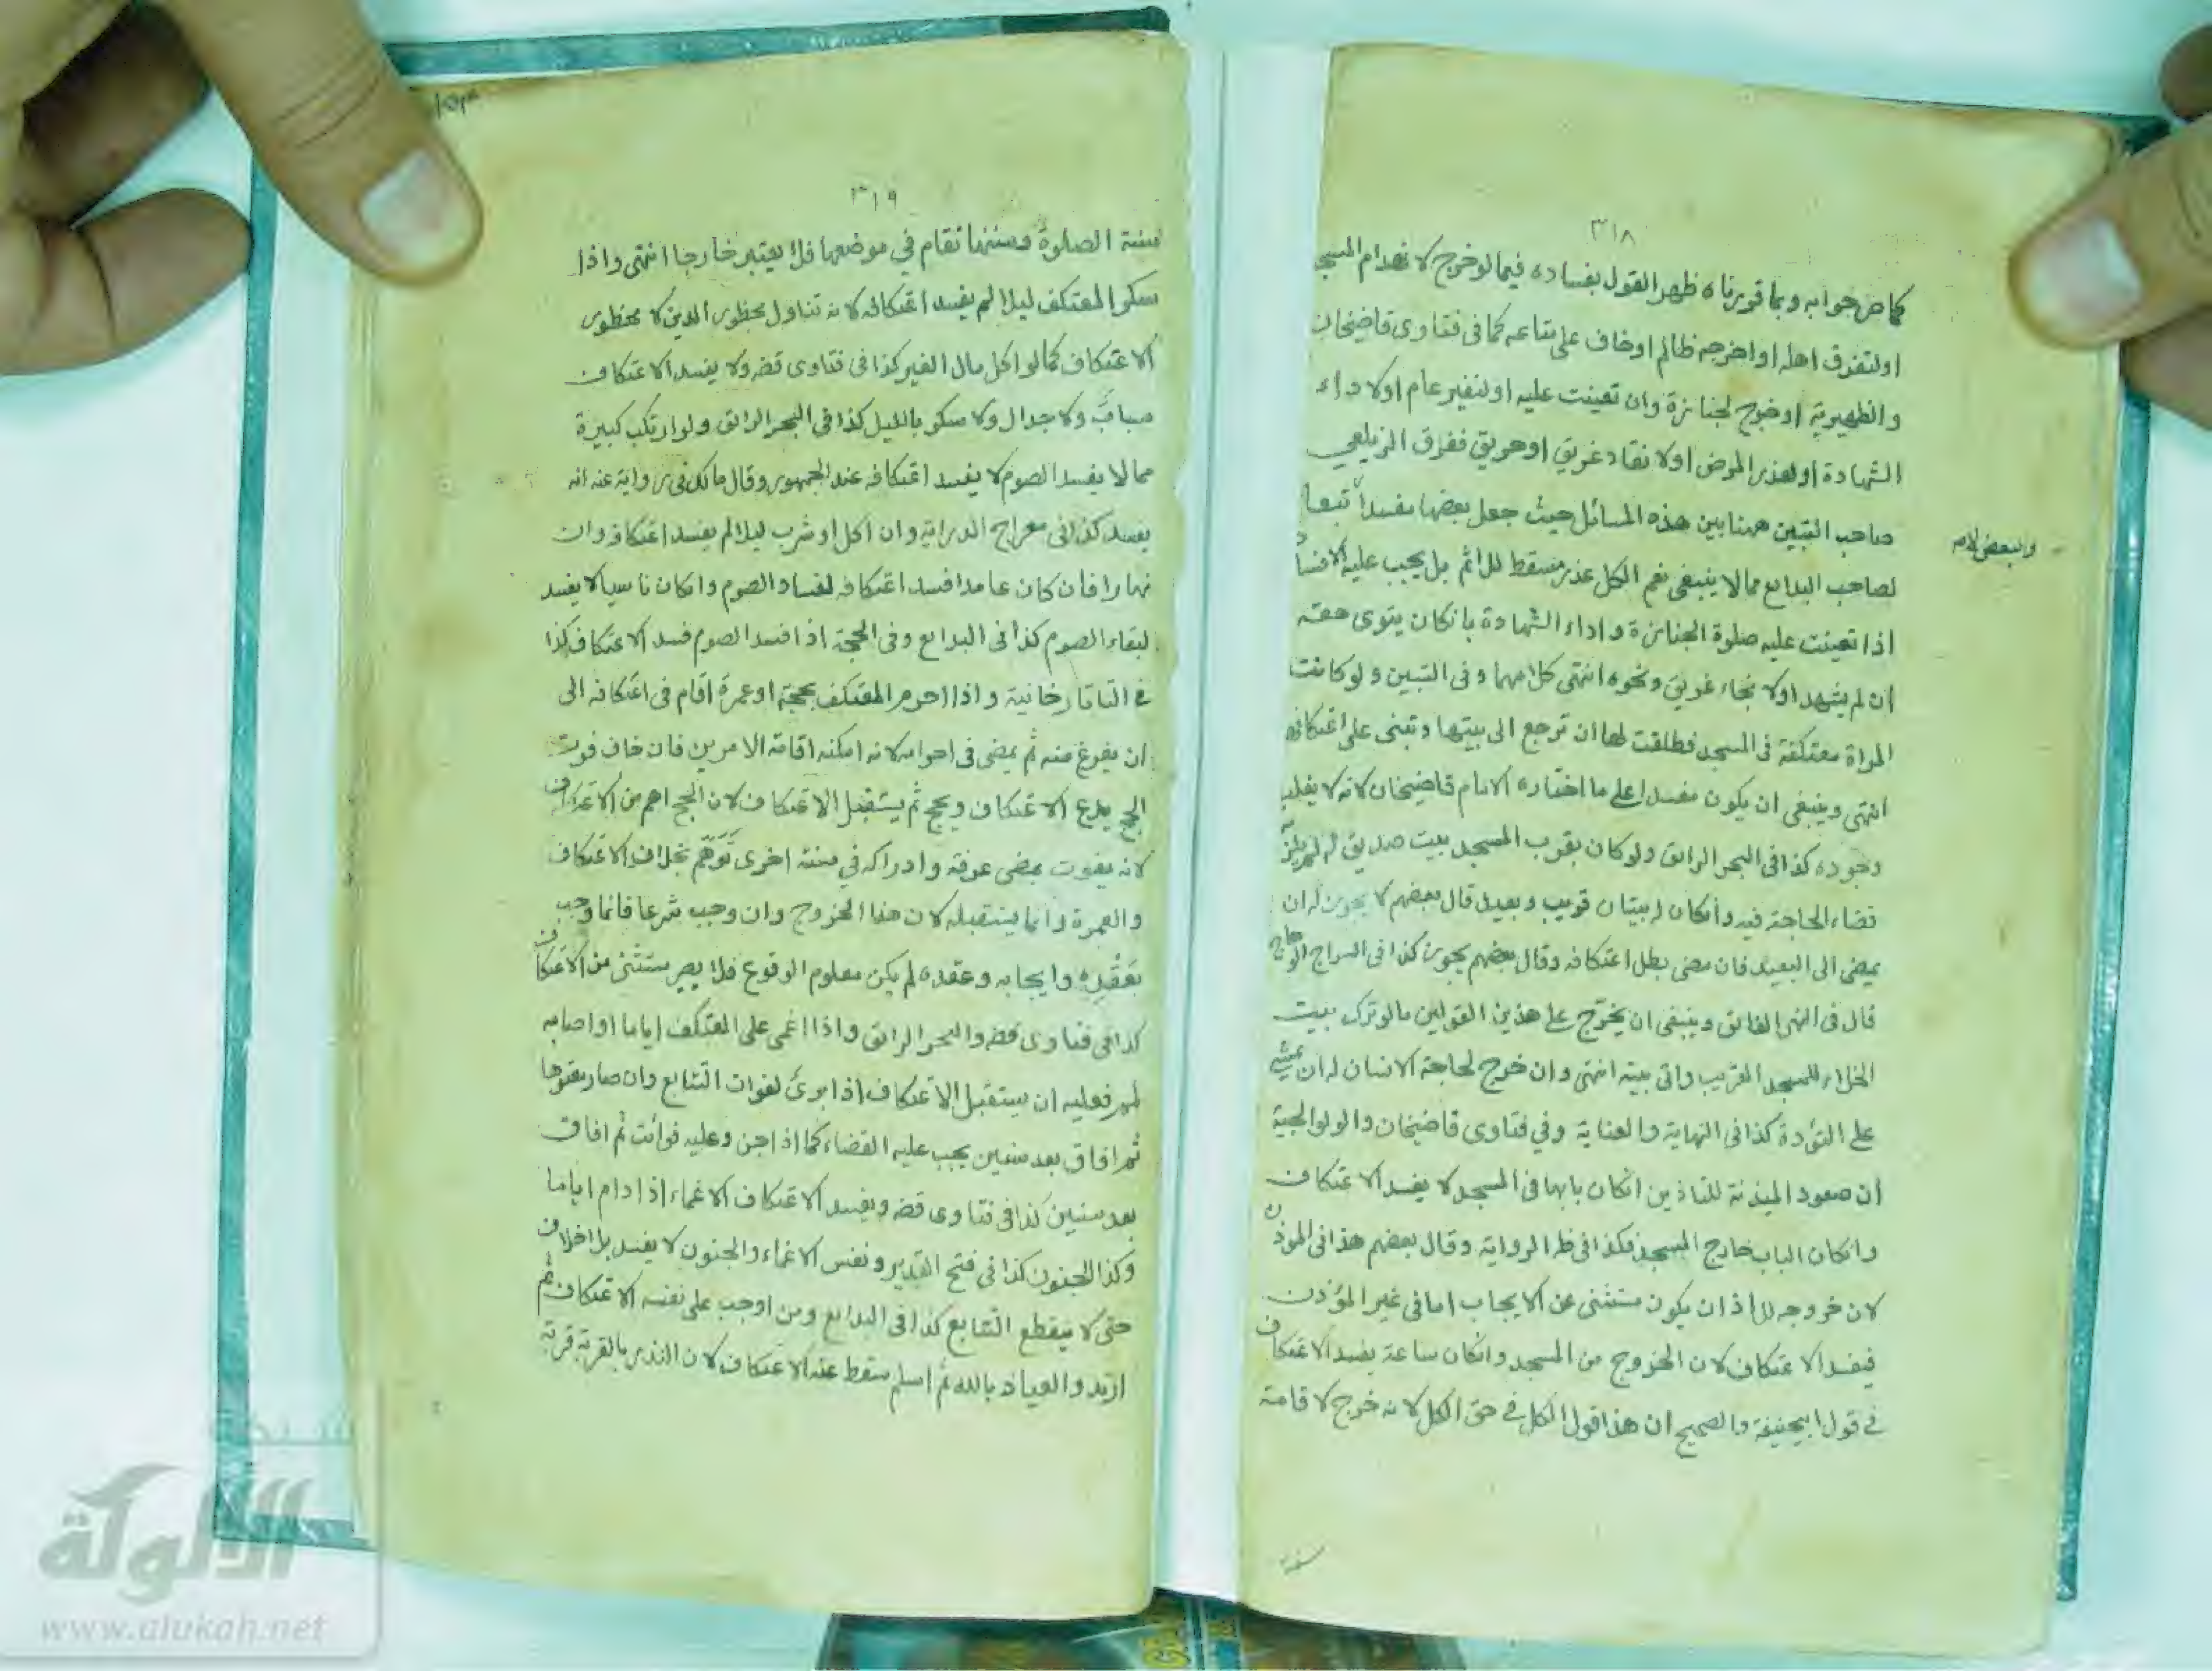 ٣١٨
كما صرحوا به وبما قررناه ظهر القول بفساده فيما لو خرج لانهدام المسجد
او لتفرق اهله او اخرجه ظالم او خاف على متاعه كما فى فتاوى قاضيخان
والظهيرية او خرج لجنازة وان تعينت عليه او لنفير عام او لاداء
الشهادة او لعذر المرض او لانقاذ غريق او حريق ففرق الزيلعي
صاحب التبيين هنا بين هذه المسائل حيث جعل بعضها مفسدا تبعا
والبعض لا
لصاحب البدائع مما لا ينبغى نعم الكل عذر مسقط للاثم بل يجب عليه الافساد
اذا تعينت عليه صلوة الجنازة واداء الشهادة بانكان يتوى حقه
ان لم يشهد او لانجاء غريق ونحوه انتهى كلامهما وفى التبيين ولو كانت
المراة معتكفة فى المسجد فطلقت لها ان ترجع الى بيتها وتبنى على اعتكافها
انتهى وينبغى ان يكون مفسدا على ما اختاره الامام قاضيخان لانه لا يغلب
وجوده كذا فى البحر الرائق ولو كان بقرب المسجد بيت صديق له لم يلزم
قضاء الحاجة فيه وانكان له بيتان قريب وبعيد قال بعضهم لا يجوز له ان
يمضى الى البعيد فان مضى بطل اعتكافه وقال بعضهم يجوز كذا فى السراج الوهاج
قال فى النهر الفائق وينبغى ان يخرّج على هذين القولين ما لو ترك بيت
الخلاء للمسجد القريب واتى بيته انتهى وان خرج لحاجة الانسان له ان يمشي
على التؤدة كذا فى النهاية والعناية وفي فتاوى قاضيخان والولوالجية
ان صعود الميذنة للتاذين انكان بابها فى المسجد لا يفسد الاعتكاف
وانكان الباب خارج المسجد فكذا فى ظ الرواية وقال بعضهم هذا فى الموذن
لان خروجه للاذان يكون مستثنى عن الايجاب اما فى غير المؤذن
فيفسد الاعتكاف لان الخروج من المسجد وانكان ساعة يفسد الاعتكاف
في قول ابيحنيفة والصحيح ان هذا قول الكل في حق الكل لانه خرج لاقامة
سنة
٣١٩
سنة الصلوة وسننها تقام في موضعها فلا يعتبر خارجا انتهى واذا
سكر المعتكف ليلا لم يفسد اعتكافه لانه تناول محظور الدين لا محظور
الاعتكاف كما لو اكل مال الغير كذا فى فتاوى قضه ولا يفسد الاعتكاف
سباب ولا جدال ولا سكر بالليل كذا فى البحر الرائق ولو ارتكب كبيرة
مما لا يفسد الصوم لا يفسد اعتكافه عند الجمهور وقال مالك فى رواية عنه انه
يفسد كذا فى معراج الدراية وان اكل او شرب ليلا لم يفسد اعتكافه وان
نهارا فان كان عامدا فسد اعتكافه لفساد الصوم وانكان ناسيا لا يفسد
لبقاء الصوم كذا فى البدائع وفى الحجة اذا فسد الصوم فسد الاعتكاف كذا
فى التاتارخانية واذا احرم المعتكف بحجة او عمرة اقام فى اعتكافه الى
ان يفرغ منه ثم يمضى فى احرامه لانه امكنه اقامة الامرين فان خاف فوت
الحج يدع الاعتكاف ويحج ثم يستقبل الاعتكاف لان الحج اهم من الاعتكاف
لانه يفوت بمضى عرفة وادراكه في سنة اخرى توهّم بخلاف الاعتكاف
والعمرة وانما يستقبله لان هذا الخروج وان وجب شرعا فانما وجب
بعقده وايجابه وعقده لم يكن معلوم الوقوع فلا يصير مستثنى من الاعتكاف
كذا فى فتاوى قضه والبحر الرائق واذا اغمى على المعتكف اياما او اصابه
لمم فعليه ان يستقبل الاعتكاف اذا برئ لفوات التتابع وان صار معتوها
ثم افاق بعد سنين يجب عليه القضاء كما اذا جن وعليه فوائت ثم افاق
بعد سنين كذا فى فتاوى قضه ويفسد الاعتكاف الاغماء اذا دام اياما
وكذا الجنون كذا فى فتح القدير ونفس الاغماء والجنون لا يفسد بلا خلاف
حتى لا ينقطع التتابع كذا فى البدائع ومن اوجب على نفسه الاعتكاف ثم
ارتد والعياذ بالله ثم اسلم سقط عنه الاعتكاف لان النذر بالقربة قربة
الألوكة
www.alukah.net